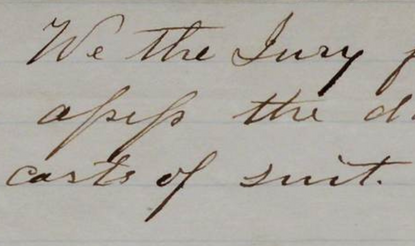 We the Jury f
assess the d
costs of suit.